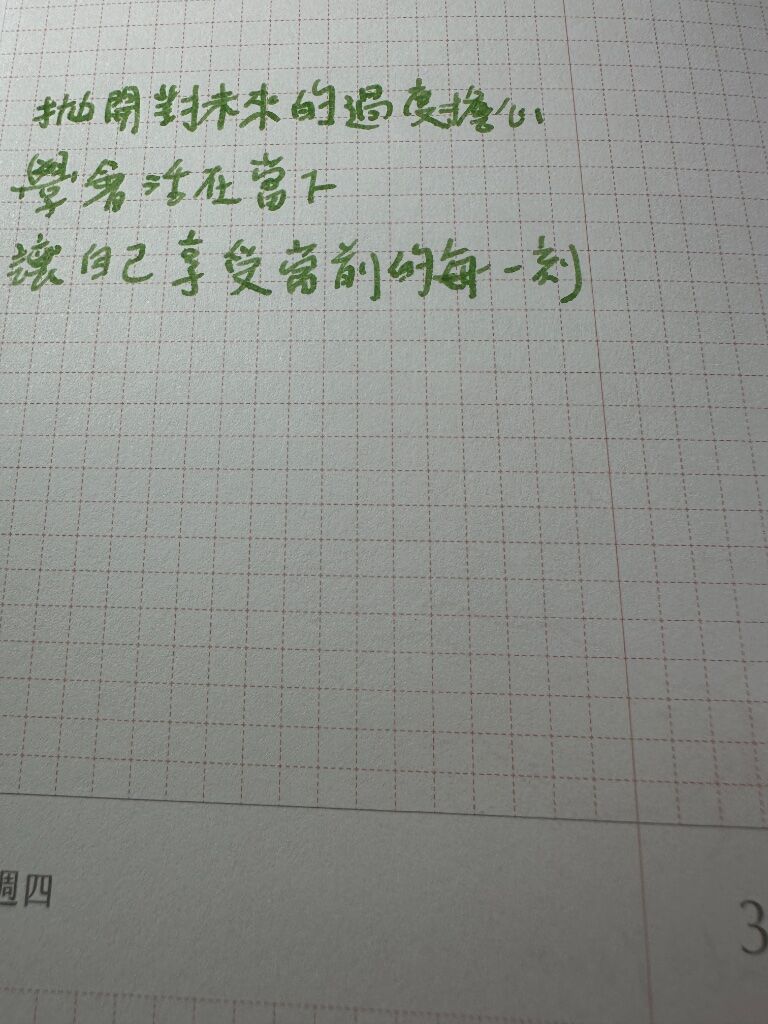 拋開對未來的過度擔心
學會活在當下
讓自己享受當前的每一刻
週四
3